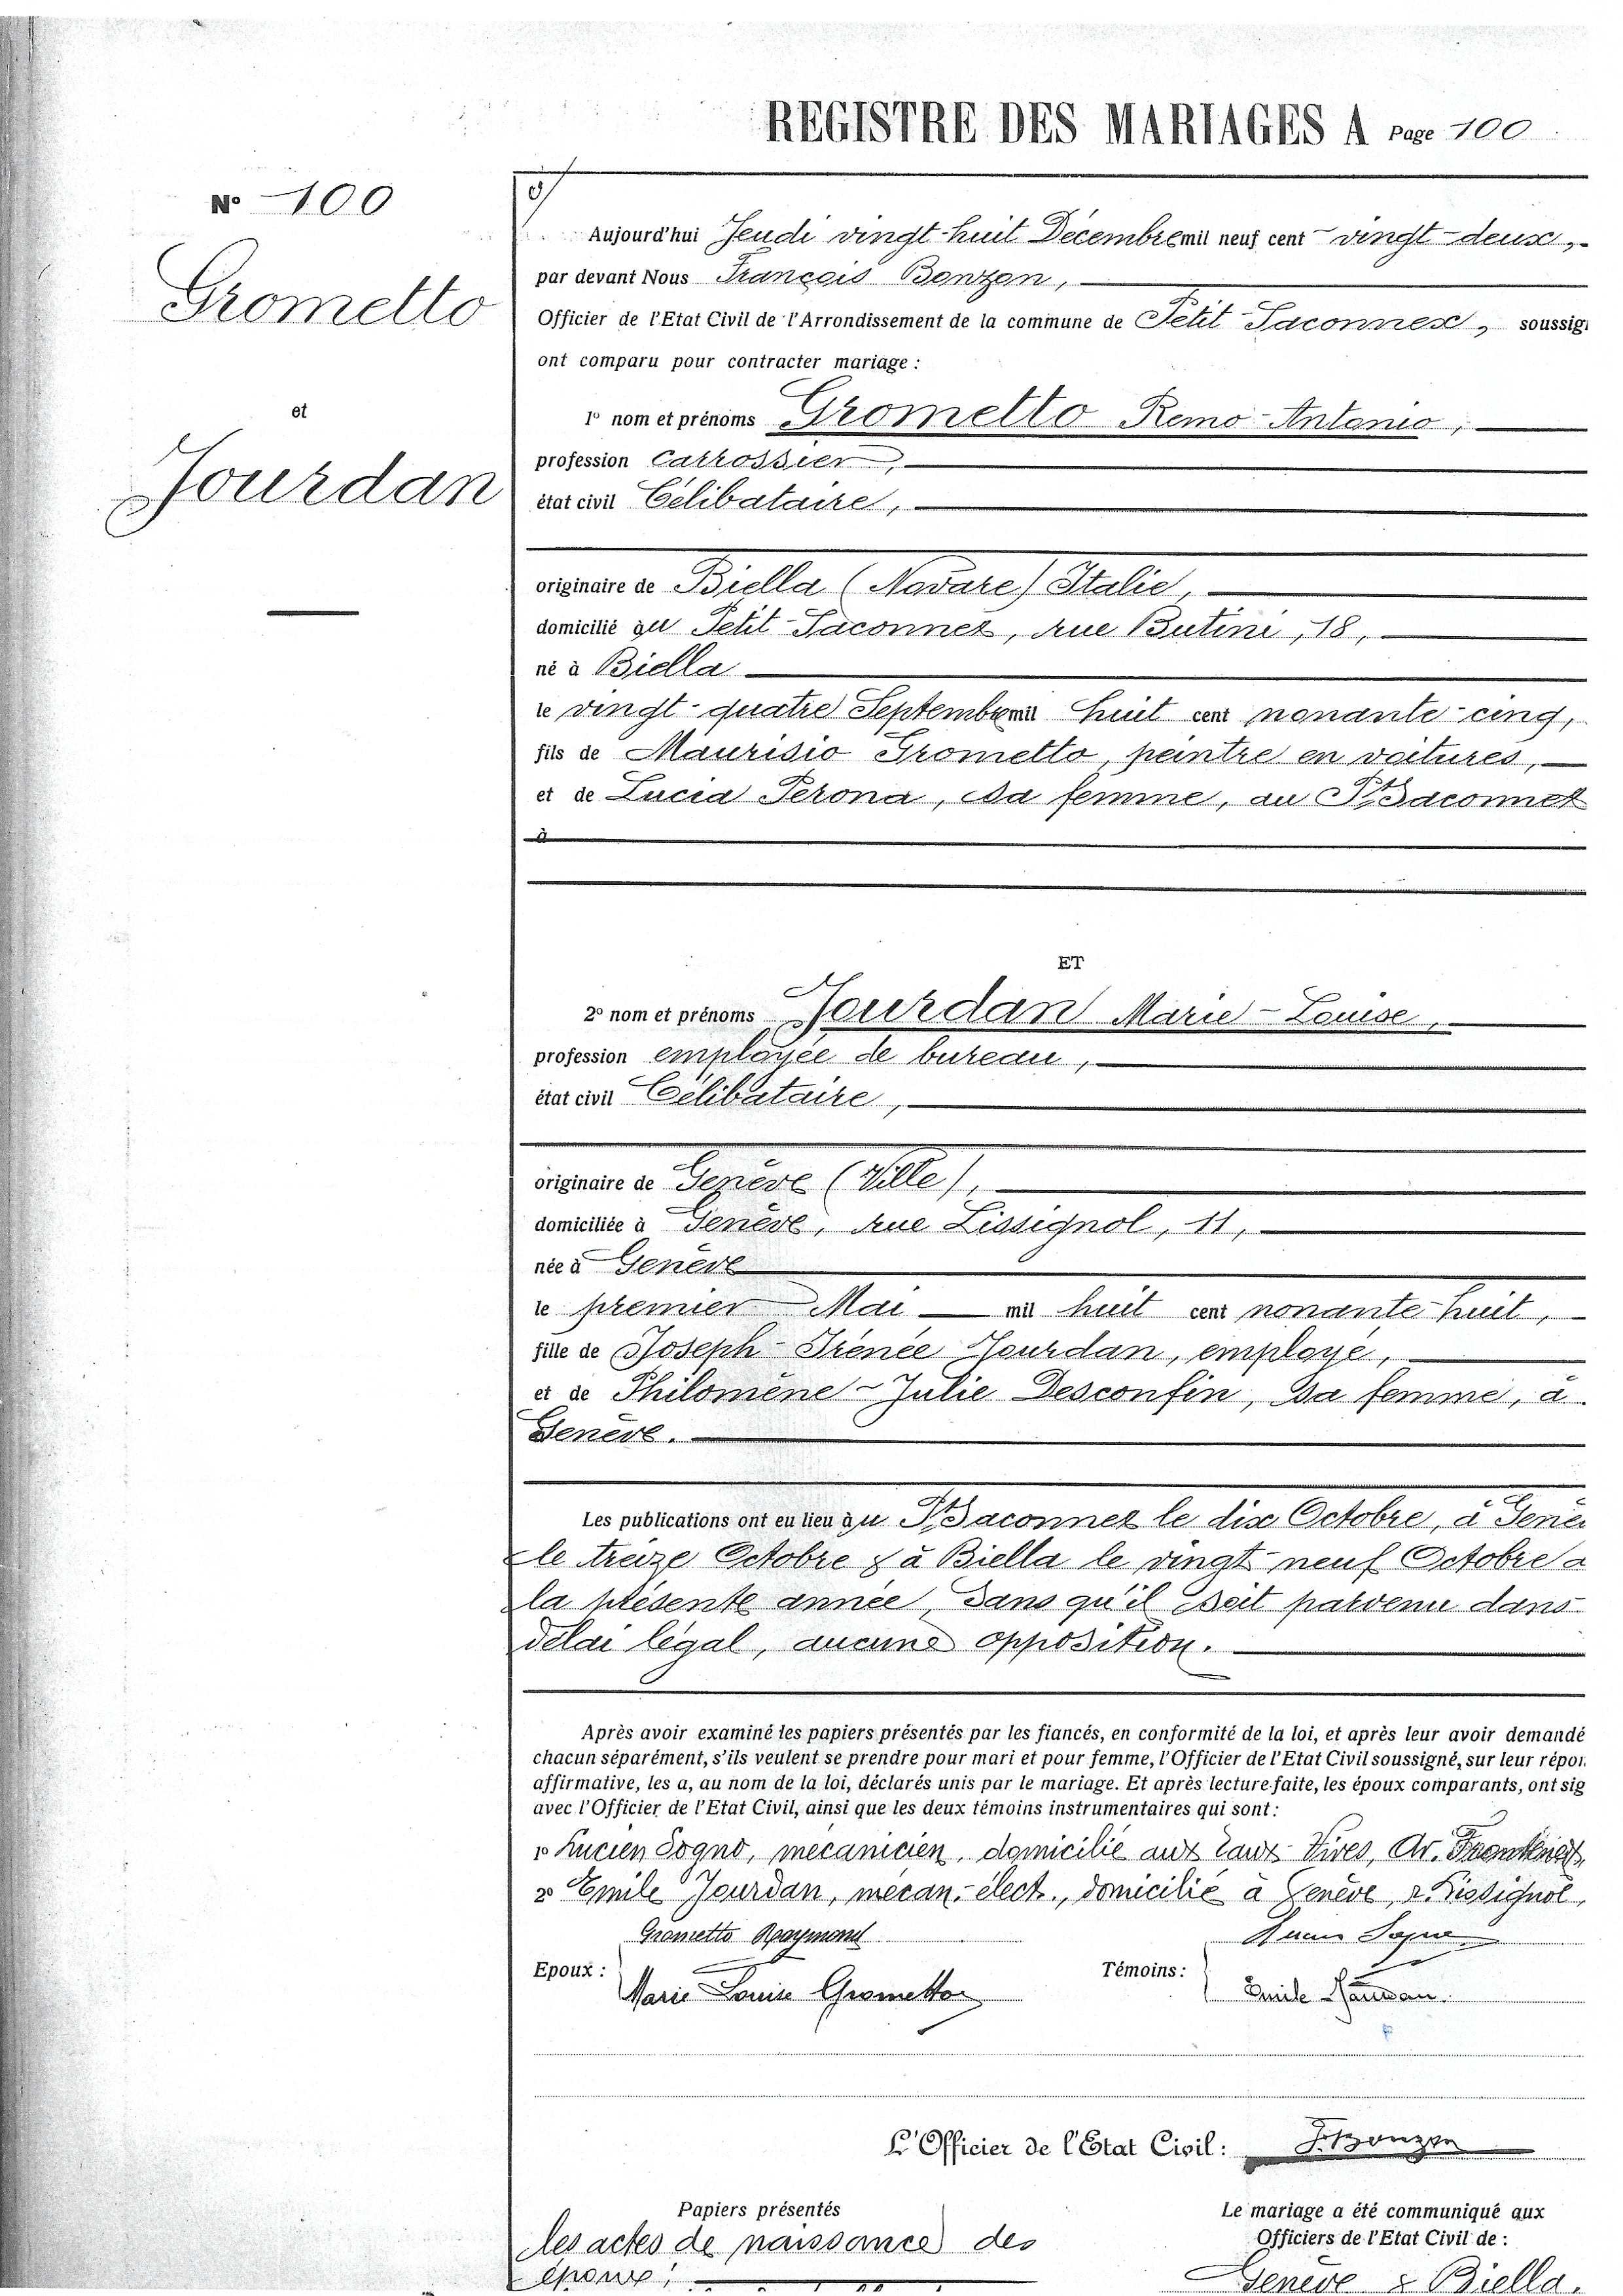 REGISTRE DES MARIAGES A Page 100
N° 100
Grometto
et
Jourdan
Aujourd'hui Jeudi vingt-huit Décembre mil neuf cent vingt-deux,
par devant Nous François Bonzon,
Officier de l'Etat Civil de l'Arrondissement de la commune de Petit-Saconnex, soussig
ont comparu pour contracter mariage :
1° nom et prénoms Grometto Remo-Antonio,
profession carrossier,
état civil Célibataire,
originaire de Biella (Novare) Italie,
domicilié au Petit-Saconnex, rue Butini, 18,
né à Biella
le vingt-quatre Septembre mil huit cent nonante-cinq,
fils de Maurisio Grometto, peintre en voitures,
et de Lucia Perona, sa femme, au Pt Saconnex
à
ET
2° nom et prénoms Jourdan Marie-Louise,
profession employée de bureau,
état civil Célibataire,
originaire de Genève (Ville),
domiciliée à Genève, rue Lissignol, 11,
née à Genève
le premier Mai mil huit cent nonante-huit,
fille de Joseph-Irénée Jourdan, employé,
et de Philomène-Julie Desconfin, sa femme, à
Genève.
Les publications ont eu lieu au Pt Saconnex le dix Octobre, à Genè
le treize Octobre & à Biella le vingt-neuf Octobre
la présente année, sans qu'il soit parvenu dans
délai légal, aucune opposition.
Après avoir examiné les papiers présentés par les fiancés, en conformité de la loi, et après leur avoir demandé
chacun séparément, s'ils veulent se prendre pour mari et pour femme, l'Officier de l'Etat Civil soussigné, sur leur répon
affirmative, les a, au nom de la loi, déclarés unis par le mariage. Et après lecture faite, les époux comparants, ont sig
avec l'Officier de l'Etat Civil, ainsi que les deux témoins instrumentaires qui sont :
1° Lucien Sogno, mécanicien, domicilié aux Eaux-Vives, Av. Frontenex,
2° Emile Jourdan, mécan.-élect., domicilié à Genève, r. Lissignol,
Grometto Raymond
Epoux :
Marie Louise Grometto
Témoins :
Emile Jourdan
L'Officier de l'Etat Civil : F. Bonzon
Papiers présentés
les actes de naissance des
époux;
Le mariage a été communiqué aux
Officiers de l'Etat Civil de :
Genève & Biella.